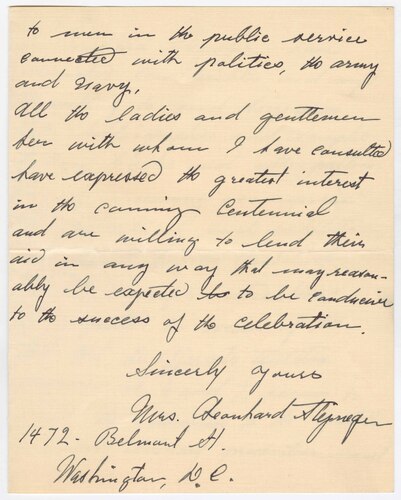 to men in the public service
connected with politics, the army
and navy.
All the ladies and gentlemen
here with whom I have consulted
have expressed the greatest interest
in the coming Centennial
and are willing to lend their
aid in any way that may reason-
ably be expected to be conducive
to the success of the celebration.
Sincerely yours
Mrs. Leonhard Stejneger
1472 - Belmont St.
Washington, D.C.